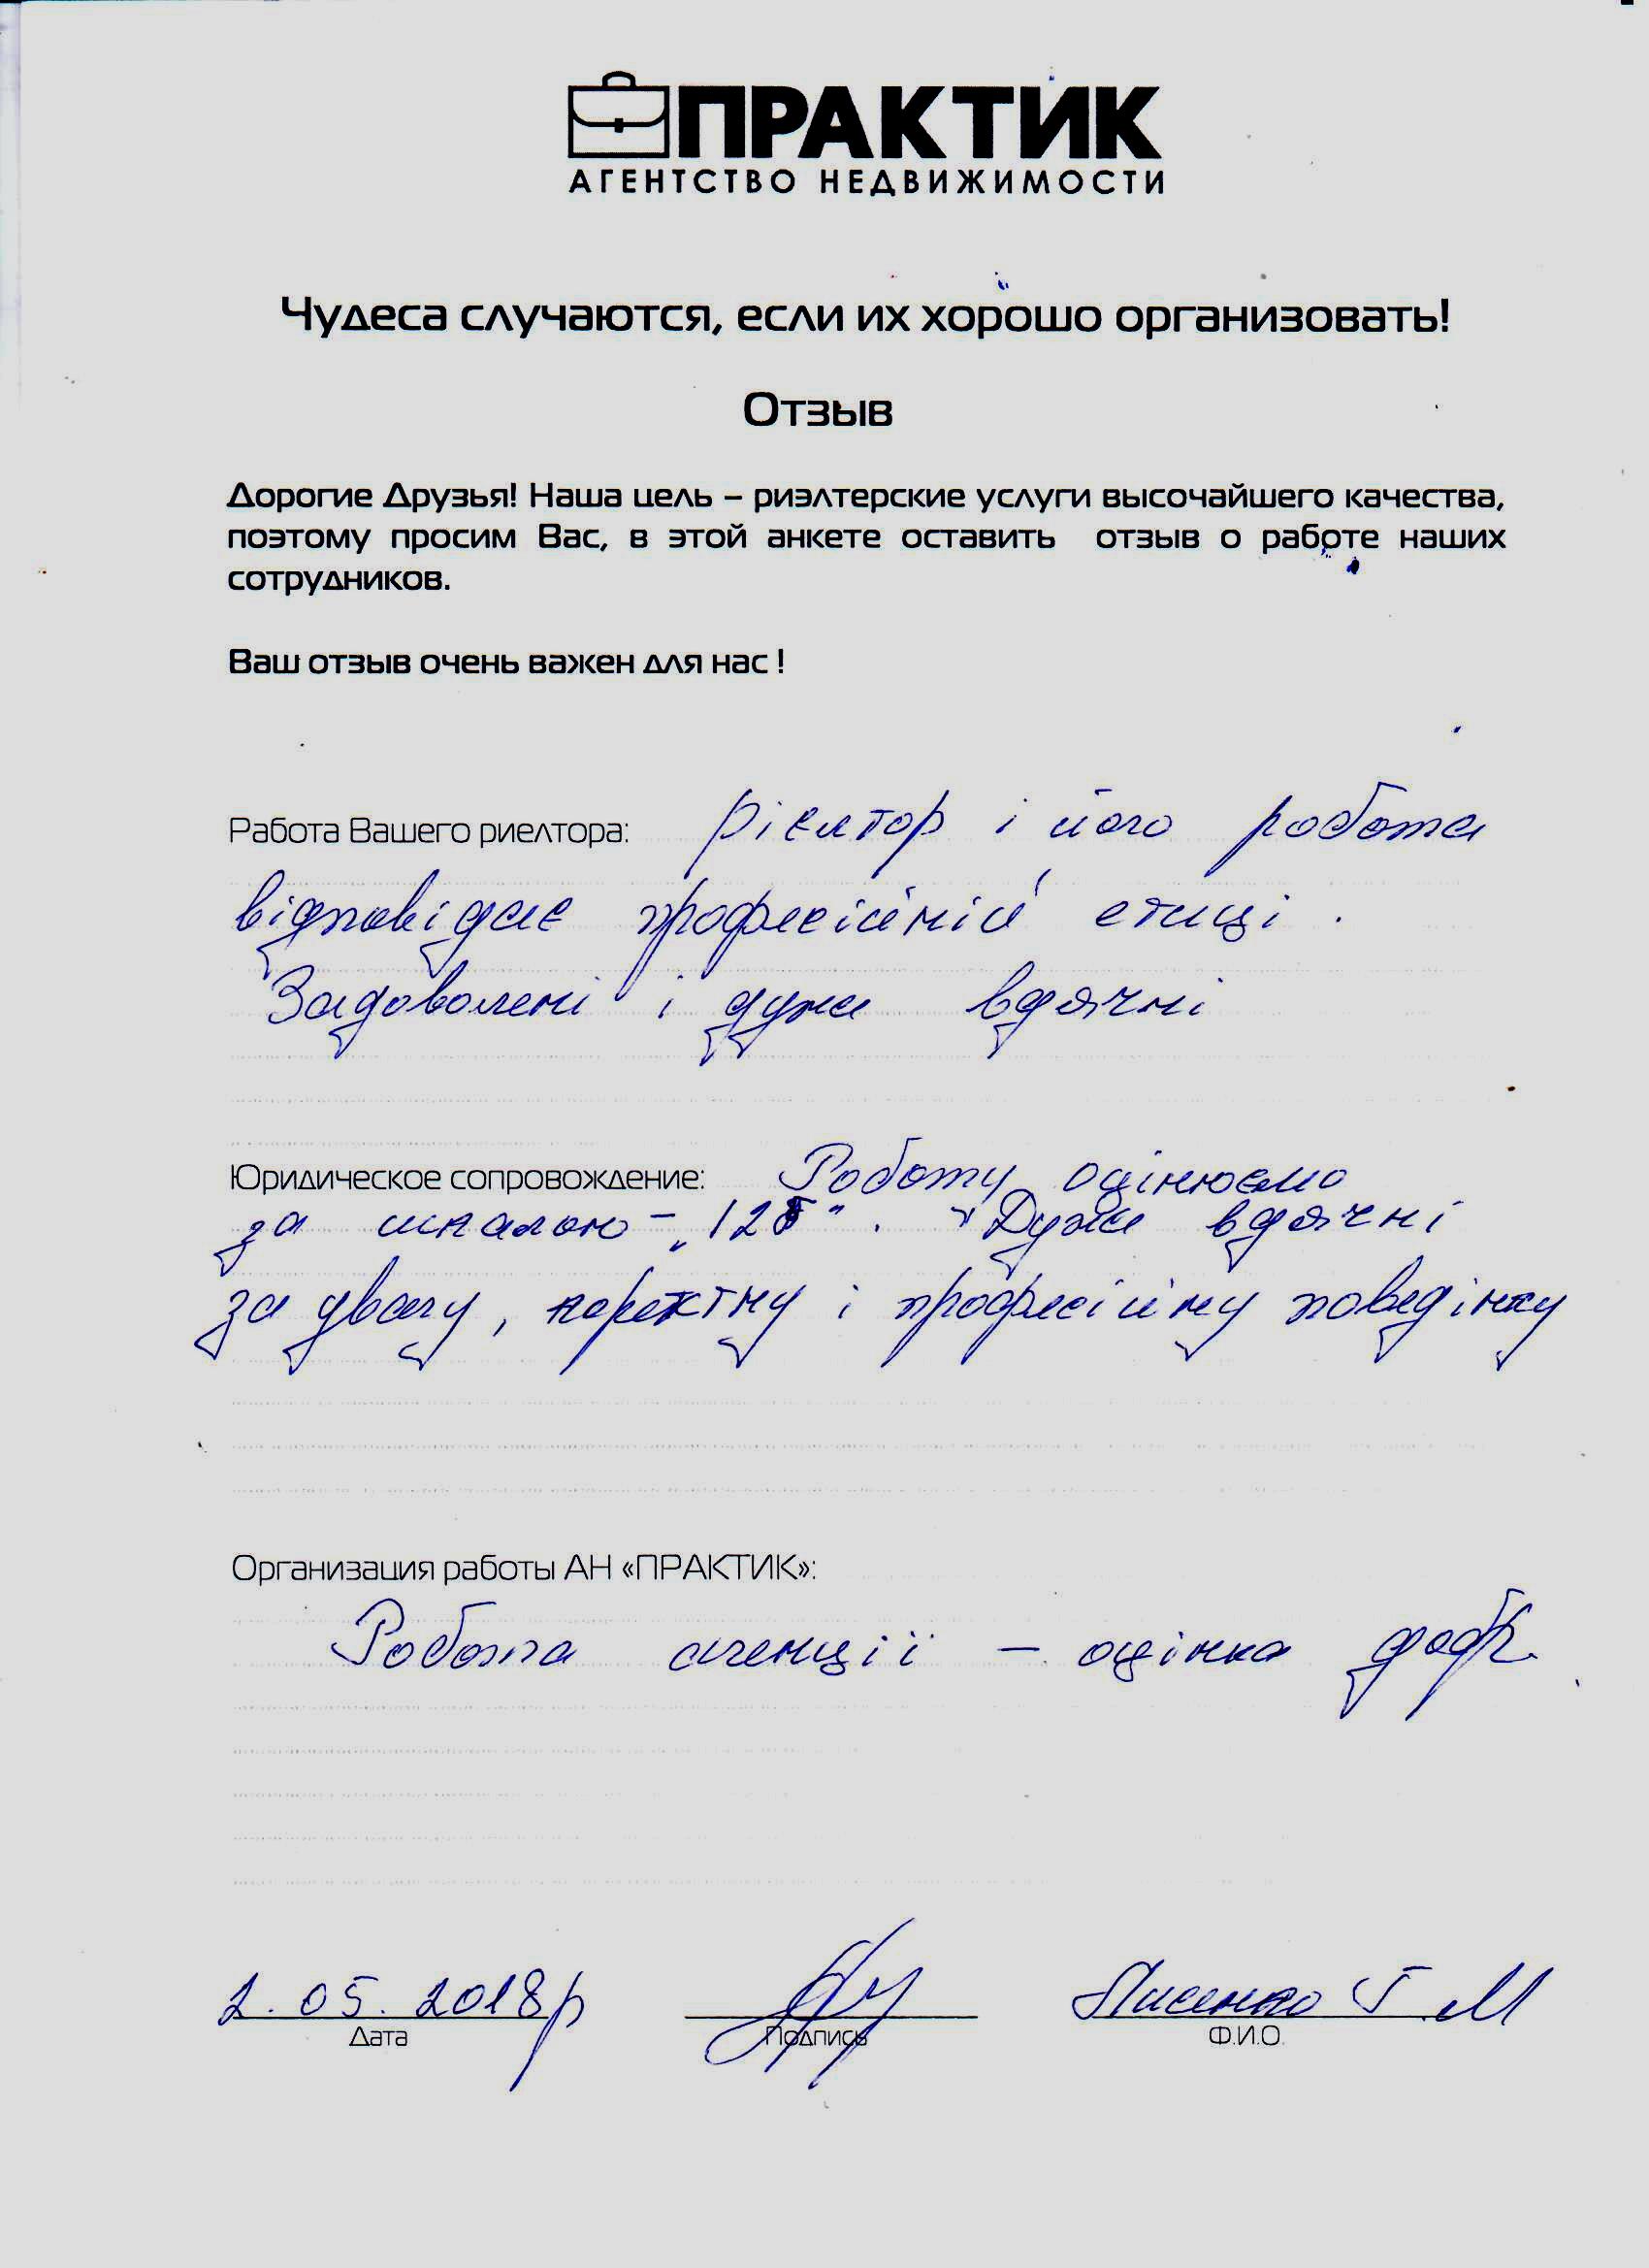 ПРАКТИК
АГЕНТСТВО НЕДВИЖИМОСТИ
Чудеса случаются, если их хорошо организовать!
Отзыв
Дорогие Друзья! Наша цель – риэлтерские услуги высочайшего качества,
поэтому просим Вас, в этой анкете оставить отзыв о работе наших
сотрудников.
Ваш отзыв очень важен для нас !
Работа Вашего риелтора: рієлтор і його робота
відповідає професійній етиці .
Задоволені і дуже вдячні
Юридическое сопровождение: Роботу оцінюємо
за шкалою – „12б“ . Дуже вдячні
за увагу, коректну і професійну поведінку
Организация работы АН «ПРАКТИК»:
Робота агенції – оцінка добр.
2. 05. 2018р
Дата
Подпись
Лисенко Г. М
Ф.И.О.